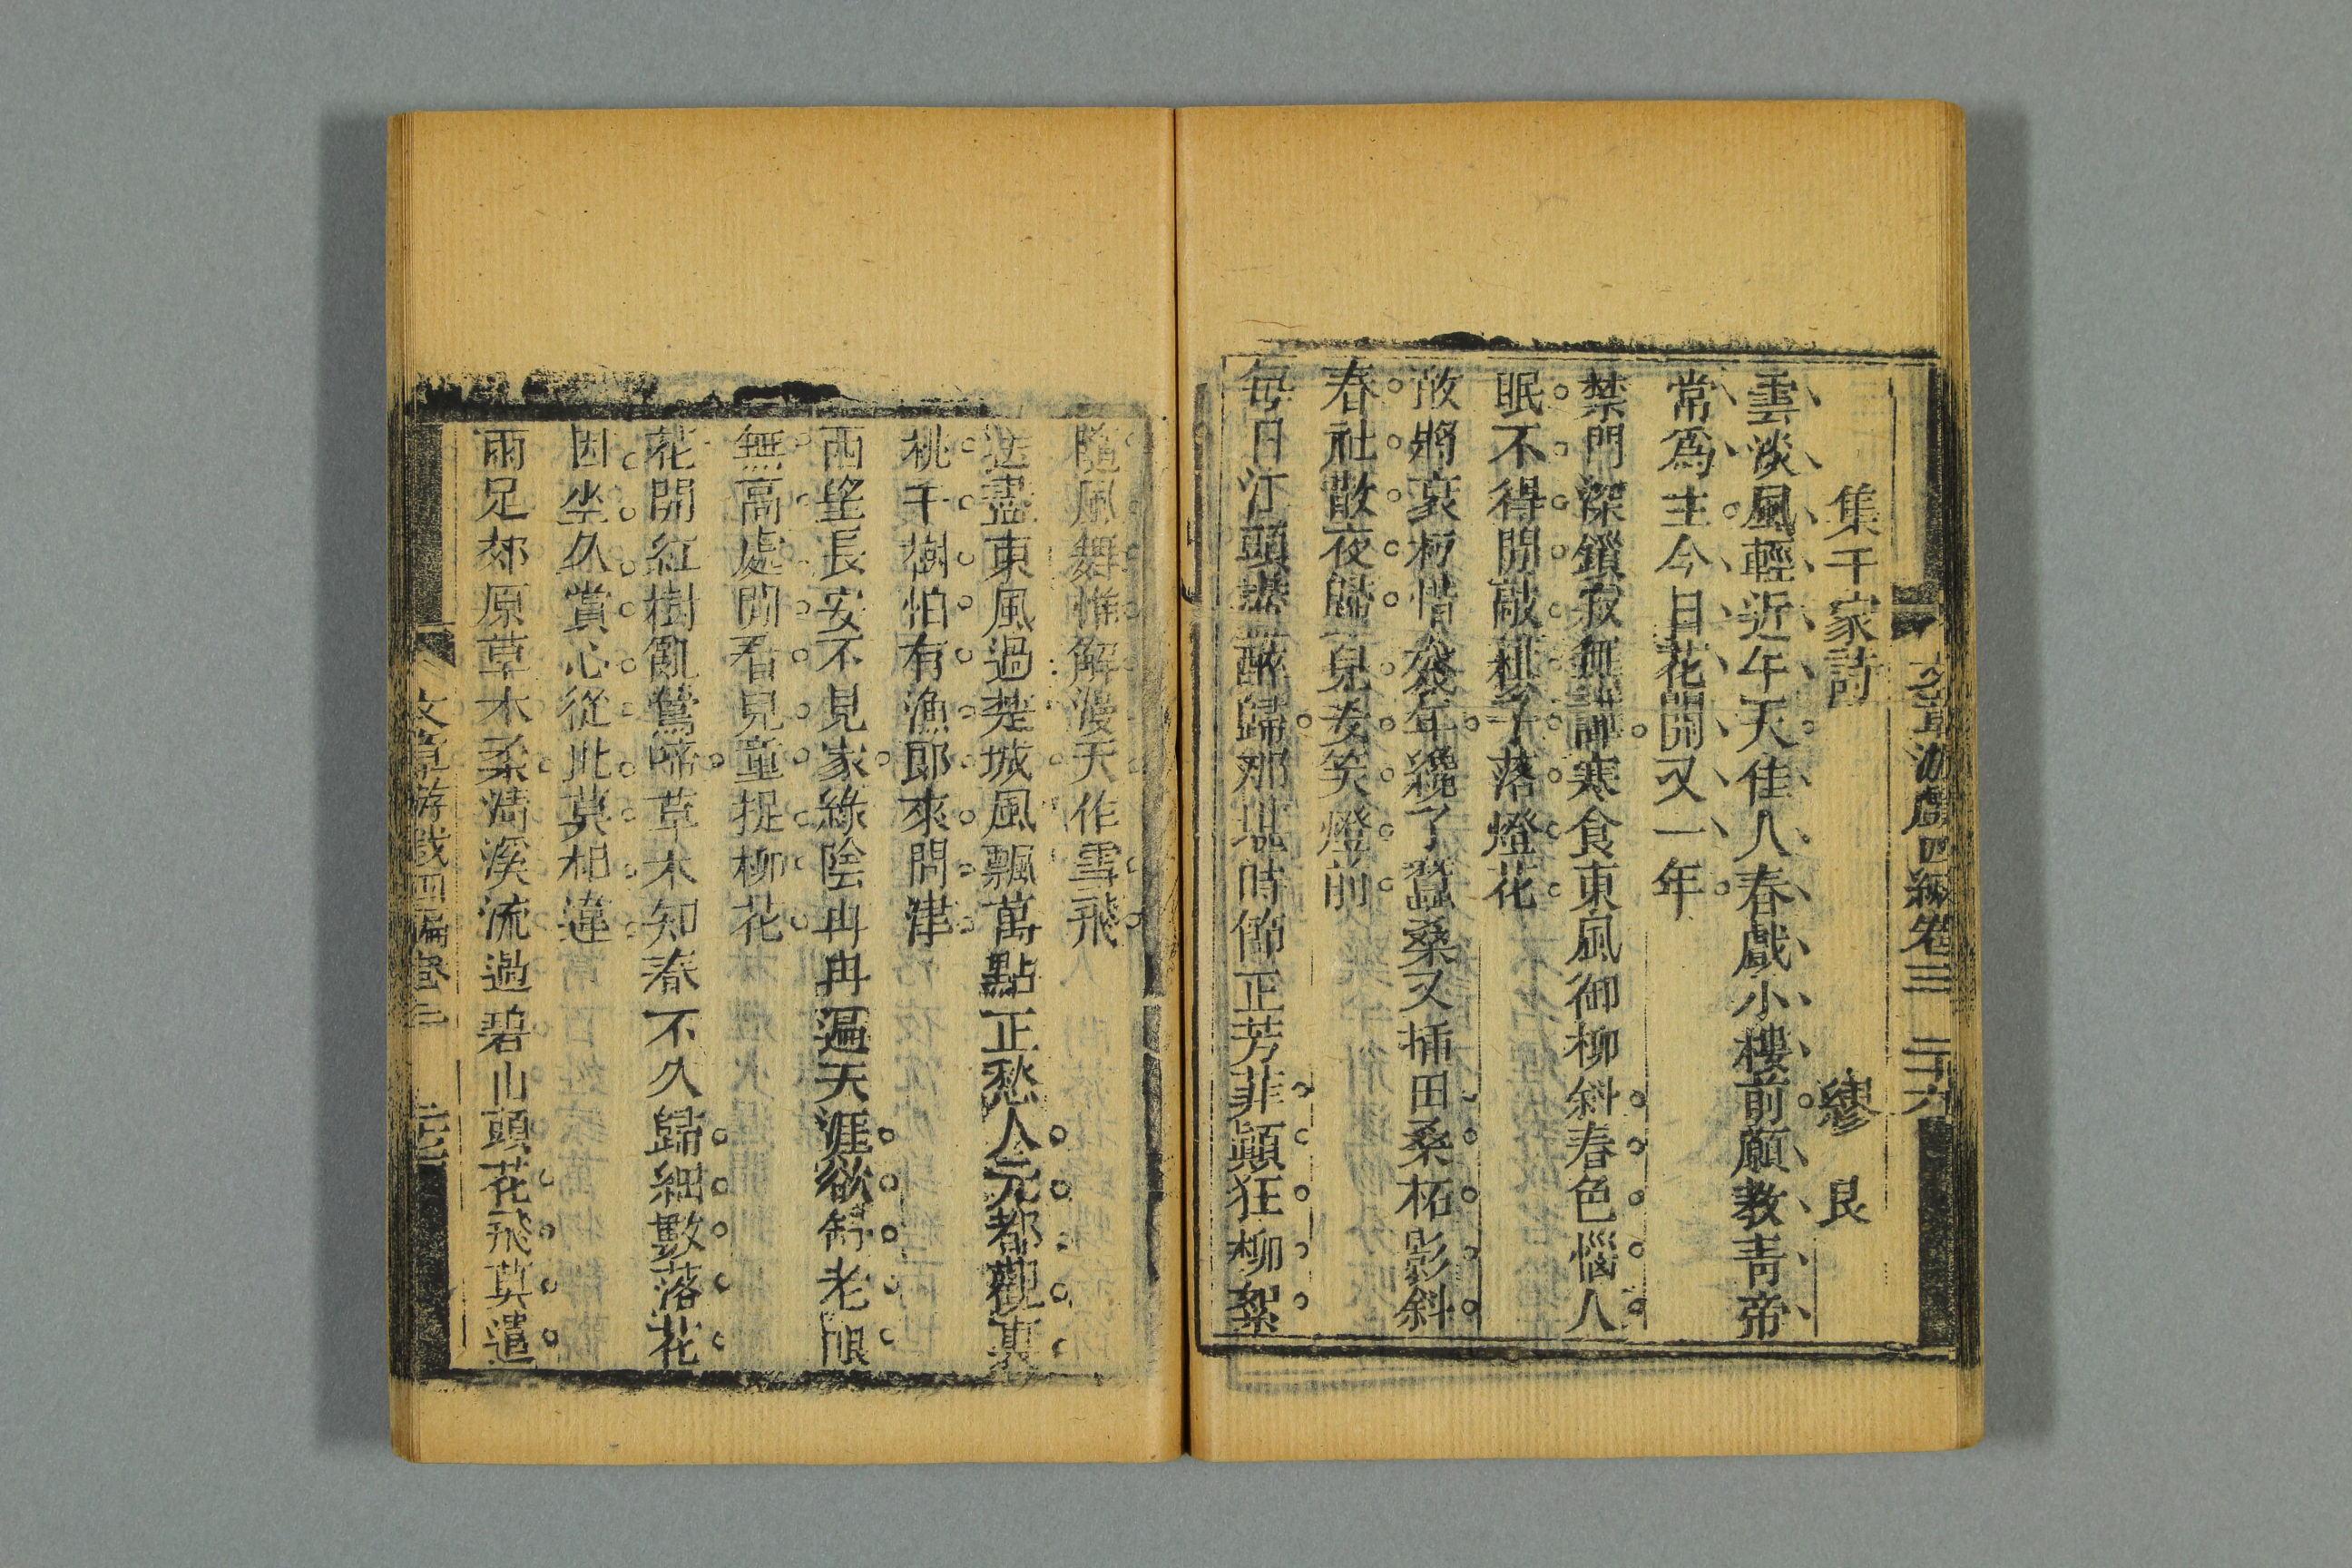 文章游戲四編卷三　二十六
集千家詩　繆艮
雲淡風輕近午天佳人春戲小樓前願教靑帝
常爲主今日花開又一年
禁門深鎖寂無譁寒食東風御柳斜春色惱人
眠不得閒敲棋子落燈花
敢將衰朽惜殘年纔了蠶桑又揷田桑柘影斜
春社散夜歸兒女笑燈前
每日江頭盡醉歸那堪時節正芳菲顚狂柳絮
隨風舞惟解漫天作雪飛
送盡東風過楚城風飄萬點正愁人元都觀裏
桃千樹怕有漁郎來問津
西望長安不見家綠陰冉冉遍天涯欲窮老眼
無高處閒看兒童捉柳花
花開紅樹亂鶯啼草木知春不久歸細數落花
因坐久賞心從此莫相違
雨足郊原草木柔淸溪流過碧山頭花飛莫遣
文章游戲四編卷三　二十七